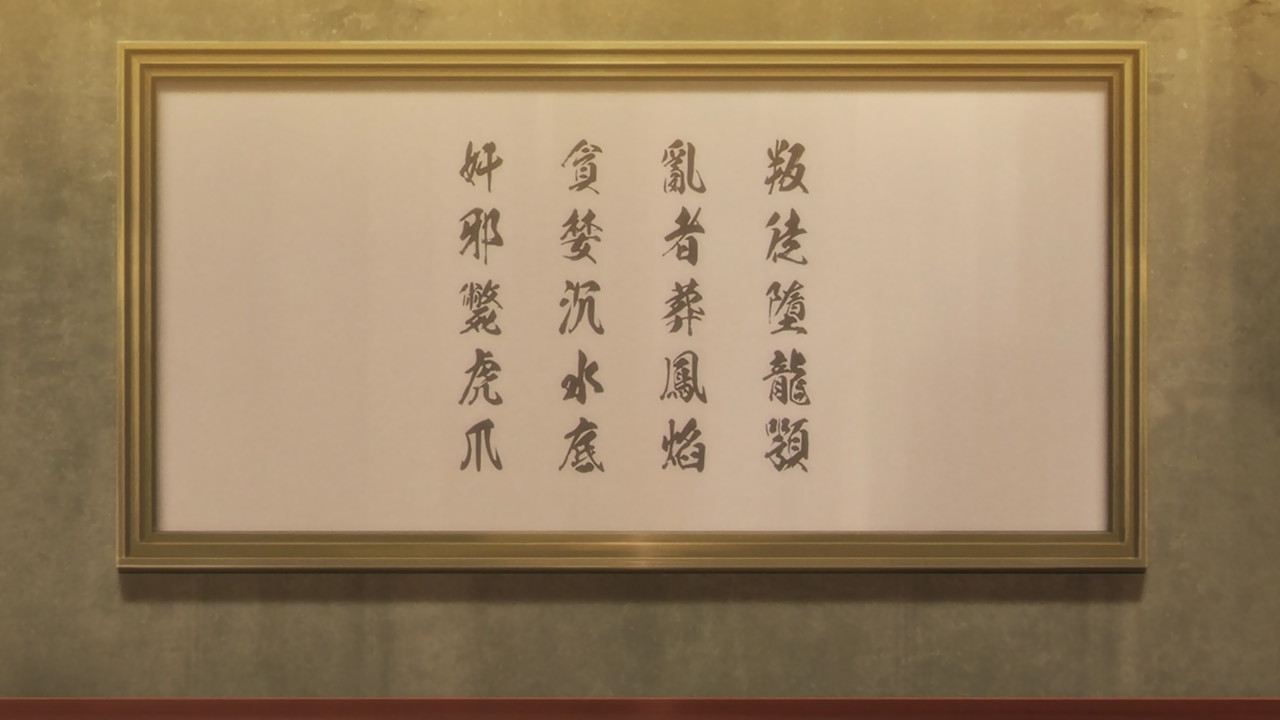 叛徒墮龍顎
亂者葬鳳焰
貪婪沉水底
奸邪斃虎爪